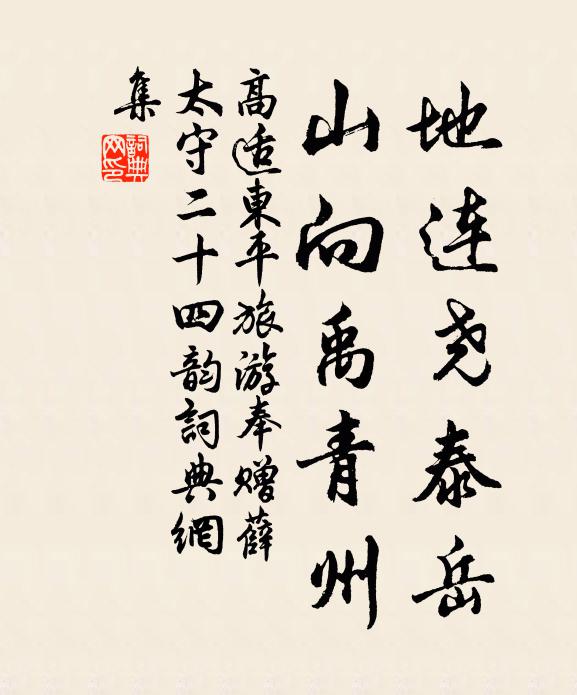 地連尧泰岳
山向禹青州
高适東平旅游奉赠薛
太守二十四韵詞典網
集
詞典
网印